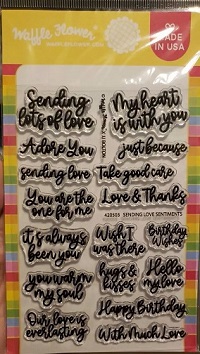 Waffle Flower
MADE
IN USA
Sending
lots of love
My heart
is with you
Adore You
just because
sending love
Take good care
You are the
one for me
Love & Thanks
420505 SENDING LOVE SENTIMENTS
it's always
been you
Wish I
was there
Birthday
Wishes
you warm
my soul
hugs &
kisses
Hello
my love
Our love is
everlasting
Happy Birthday
With Much Love